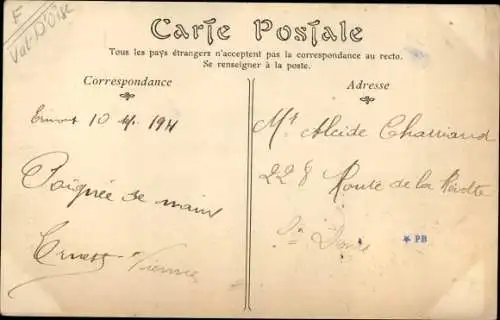 F
Val-D'Oise
Carte Postale
Tous les pays étrangers n'acceptent pas la correspondance au recto.
Se renseigner à la poste.
Correspondance
Adresse
10 4 1911
Poignée de main
Ernest Vienne
Mr Alcide Charriaud
228 Route de la Révolte
St Denis
PB